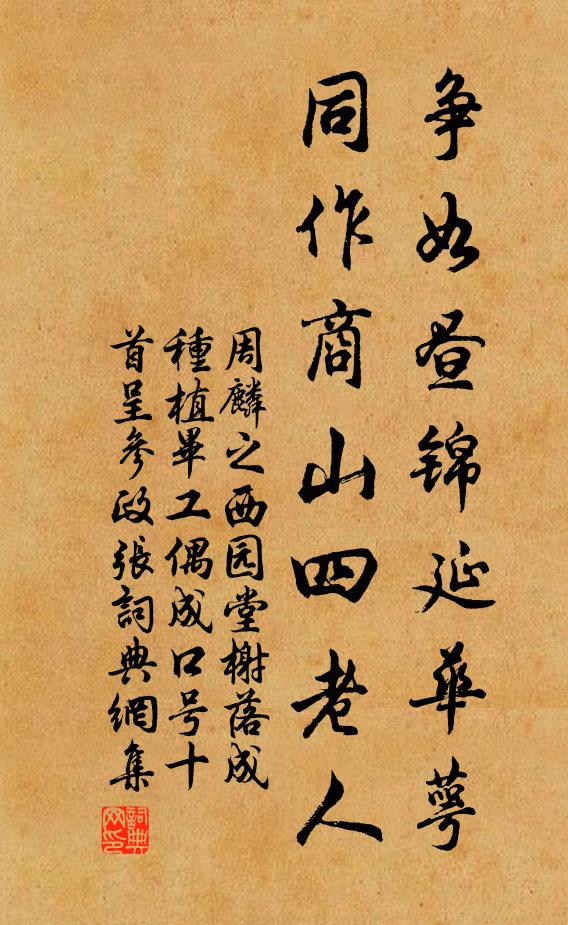 争如昼锦延华萼
同作商山四老人
周麟之西园堂榭落成
種植畢工偶成口号十
首呈参政張詞典網集
詞典网印